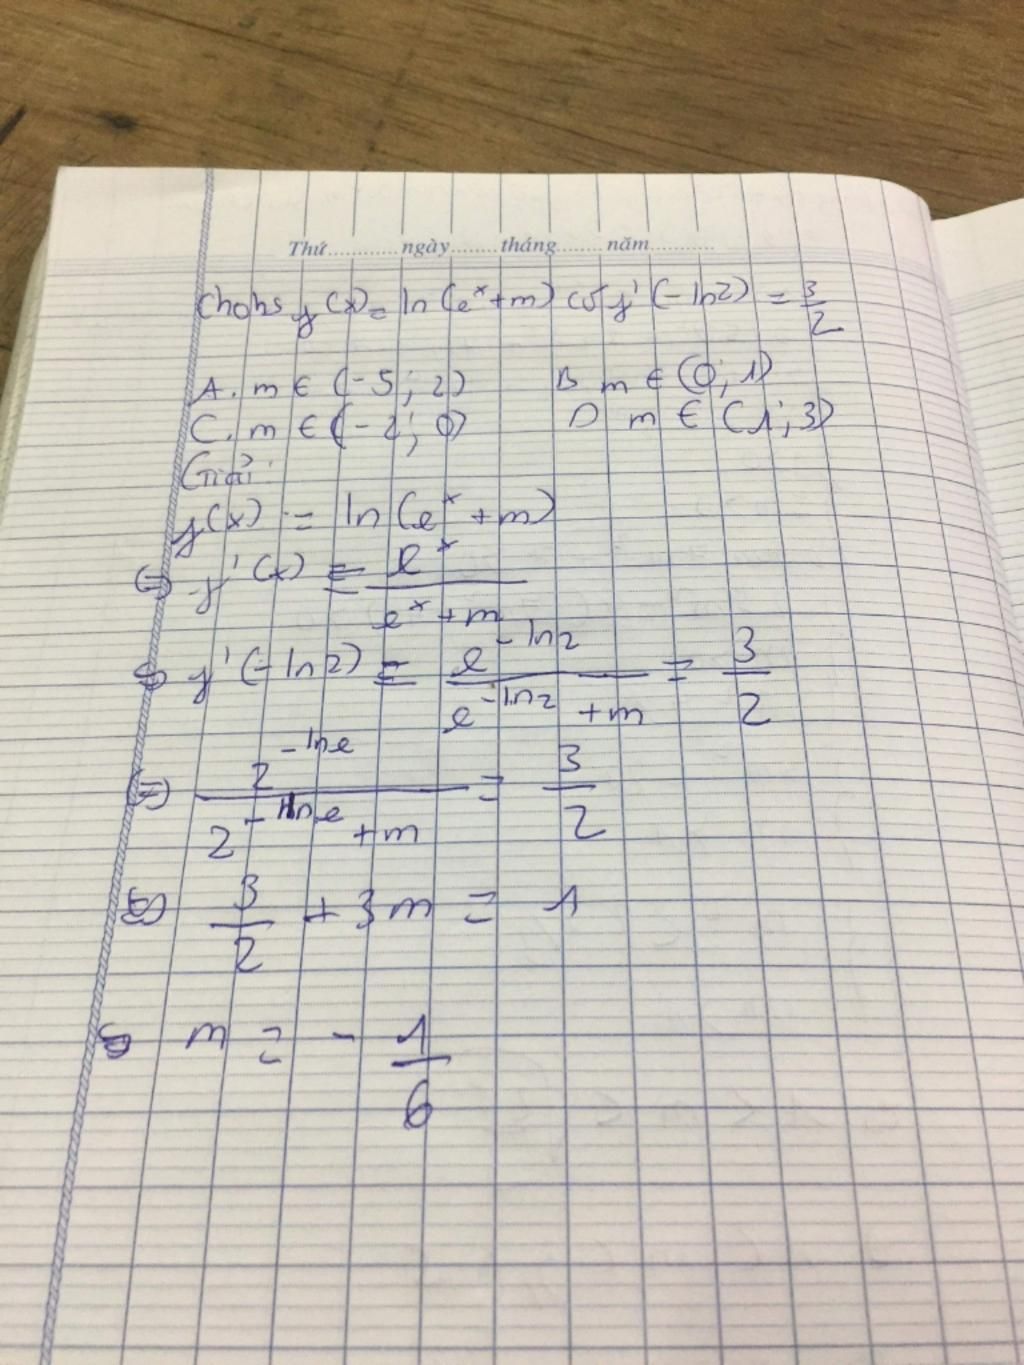 Thứ.......... ngày........ tháng........ năm...........
Cho hs y(x) = ln(e^x + m) có y'(-ln2) = 3/2
A. m ∈ (-5; 2) B m ∈ (0; 1)
C. m ∈ (-2; 0) D m ∈ (1; 3)
Giải:
y(x) = ln(e^x + m)
⇔ y'(x) = e^x / (e^x + m)
⇔ y'(-ln2) = e^(-ln2) / (e^(-ln2) + m) = 3/2
⇔ 2^(-lne) / (2^(-lne) + m) = 3/2
⇔ 3/2 + 3m = 1
⇔ m = - 1/6